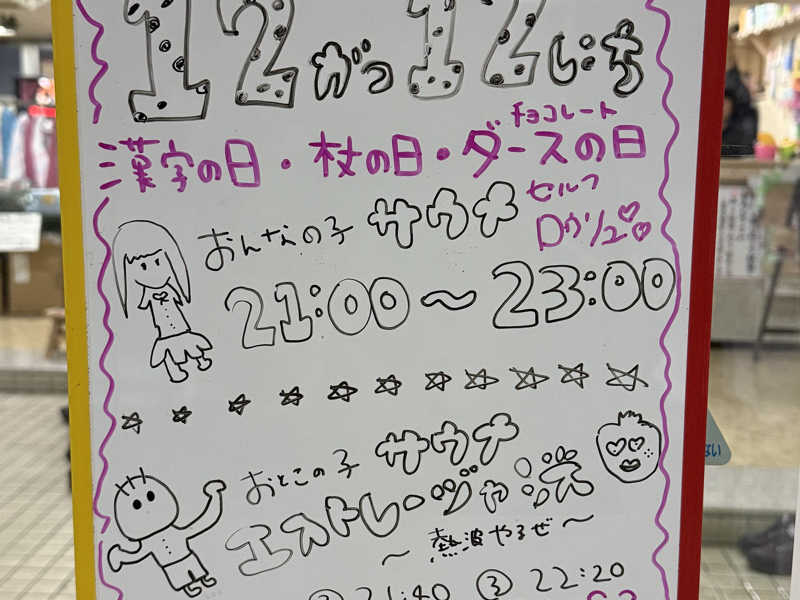 12がつ12にち
漢字の日・杖の日・ダースの日
チョコレート
おんなの子 サウナ
セルフ
ロウリュ
21:00〜23:00
おとこの子 サウナ
エストレージャス
〜熱波やるぜ〜
② 21:40 ③ 22:20
ない